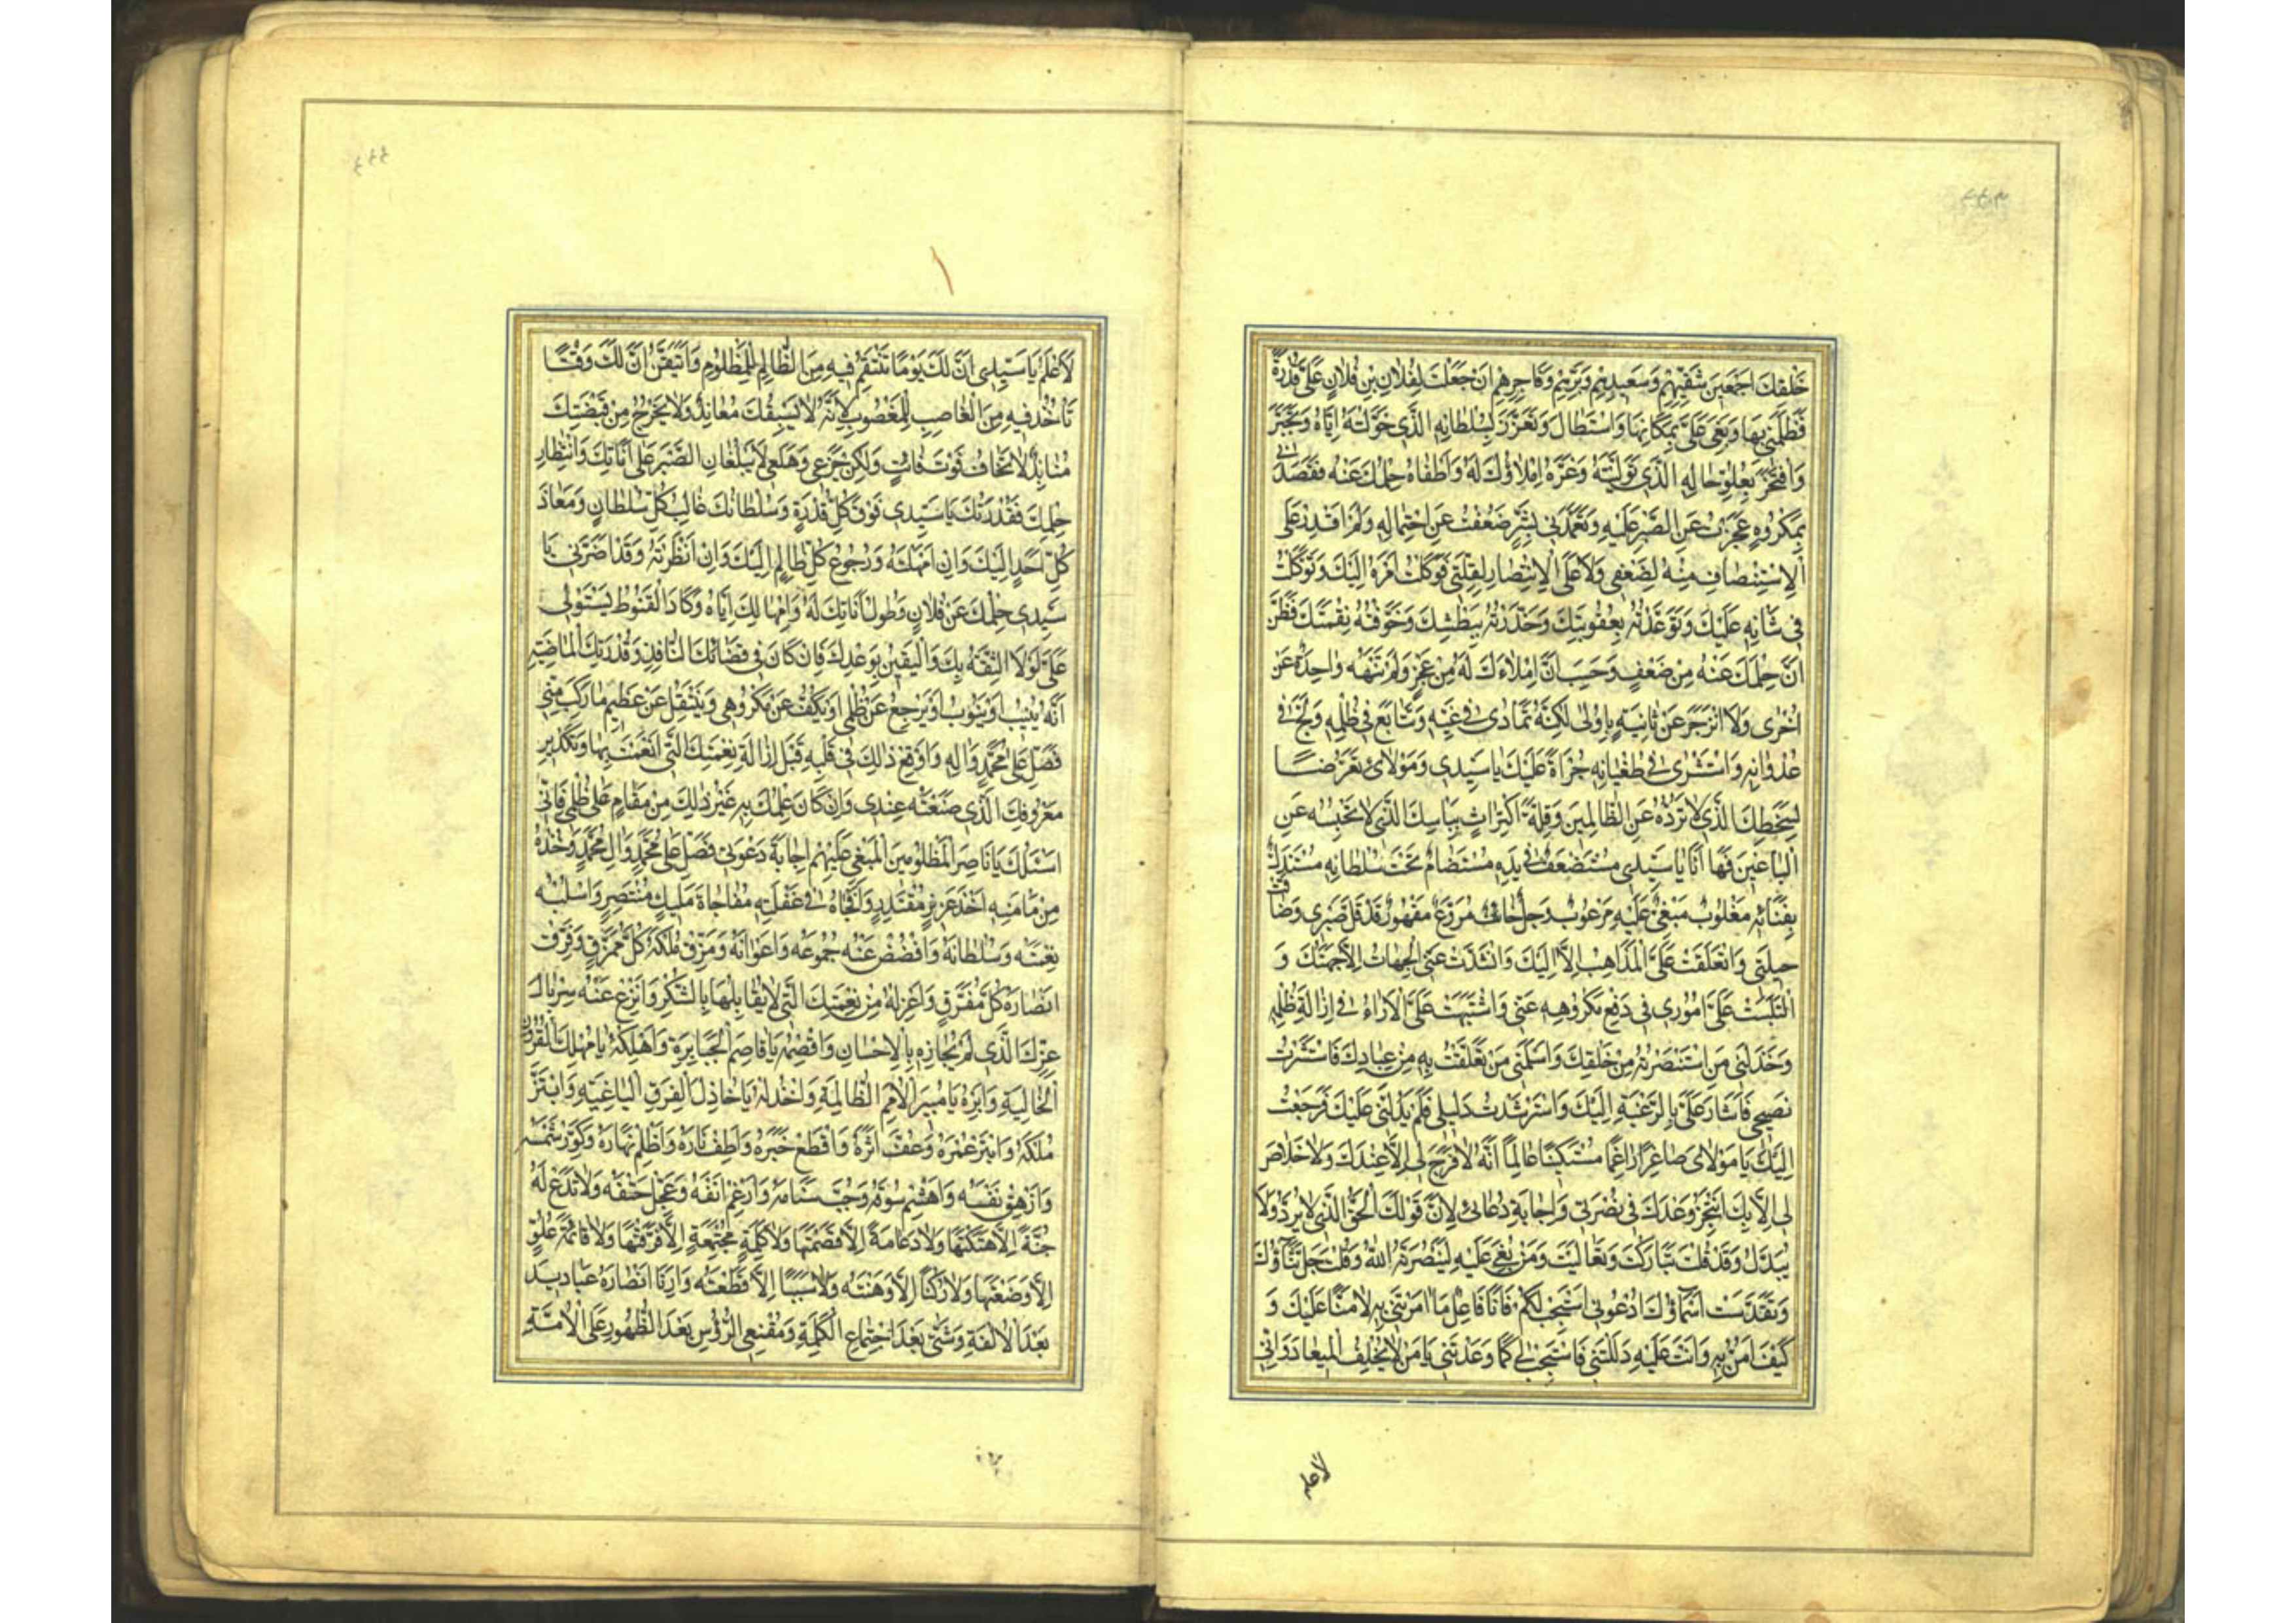 خَلْقِكَ اَجْمَعِينَ شَقِيِّهِمْ وَسَعِيدِهِمْ وَبَرِّهِمْ وَفَاجِرِهِمْ اَنْ جَعَلْتَ لِفُلَانِ بْنِ فُلَانٍ عَلَىَّ قُدْرَةً
فَظَلَمَنِى بِهَا وَبَغٰى عَلَىَّ بِمَكَانِهَا وَاسْتَطَالَ وَتَعَزَّزَ بِسُلْطَانِهِ الَّذِى خَوَّلْتَهُ اِيَّاهُ وَتَجَبَّرَ
وَافْتَخَرَ بِعُلُوِّ حَالِهِ الَّذِى نَوَّلْتَهُ وَغَرَّهُ اِمْلَاؤُكَ لَهُ وَاَطْغَاهُ حِلْمُكَ عَنْهُ فَقَصَدَنِى
بِمَكْرُوهٍ عَجَزْتُ عَنِ الصَّبْرِ عَلَيْهِ وَتَعَمَّدَنِى بِشَرٍّ ضَعُفْتُ عَنِ احْتِمَالِهِ وَلَمْ اَقْدِرْ عَلَى
الْاِسْتِنْصَافِ مِنْهُ لِضَعْفِى وَلَا عَلَى الْاِنْتِصَارِ لِقِلَّتِى فَوَكَلْتُ اَمْرَهُ اِلَيْكَ وَتَوَكَّلْتُ
فِى شَانِهِ عَلَيْكَ وَتَوَعَّدْتُهُ بِعُقُوبَتِكَ وَحَذَّرْتُهُ بِبَطْشِكَ وَخَوَّفْتُهُ نِقْمَتَكَ فَظَنَّ
اَنَّ حِلْمَكَ عَنْهُ مِنْ ضَعْفٍ وَحَسِبَ اَنَّ اِمْلَاءَكَ لَهُ مِنْ عَجْزٍ وَلَمْ تَنْهَهُ وَاحِدَةٌ عَنْ
اُخْرٰى وَلَا انْزَجَرَ عَنْ ثَانِيَةٍ بِاُولٰى لٰكِنَّهُ تَمَادٰى فِى غَيِّهِ وَتَتَابَعَ فِى ظُلْمِهِ وَلَجَّ فِى
عُدْوَانِهِ وَاسْتَشْرٰى فِى طُغْيَانِهِ جُرْاَةً عَلَيْكَ يَا سَيِّدِى وَمَوْلَاىَ وَتَعَرُّضًا
لِسَخَطِكَ الَّذِى لَا تَرُدُّهُ عَنِ الظَّالِمِينَ وَقِلَّةَ اكْتِرَاثٍ بِبَاْسِكَ الَّذِى لَا تَحْبِسُهُ عَنِ
الْبَاغِينَ فَهَا اَنَا يَا سَيِّدِى مُسْتَضْعَفٌ فِى يَدِهِ مُسْتَضَامٌ تَحْتَ سُلْطَانِهِ مُسْتَذَلٌّ
بِفِنَائِهِ مَغْلُوبٌ مَبْغِىٌّ عَلَيْهِ مَرْعُوبٌ وَجِلٌ خَائِفٌ مُرَوَّعٌ مَقْهُورٌ قَدْ قَلَّ صَبْرِى وَضَاقَتْ
حِيلَتِى وَانْغَلَقَتْ عَلَىَّ الْمَذَاهِبُ اِلَّا اِلَيْكَ وَانْسَدَّتْ عَنِّى الْجِهَاتُ اِلَّا جِهَتُكَ وَ
الْتَبَسَتْ عَلَىَّ اُمُورِى فِى دَفْعِ مَكْرُوهِهِ عَنِّى وَاشْتَبَهَتْ عَلَىَّ الْآرَاءُ فِى اِزَالَةِ ظُلْمِهِ
وَخَذَلَنِى مَنِ اسْتَنْصَرْتُهُ مِنْ خَلْقِكَ وَاَسْلَمَنِى مَنْ تَعَلَّقْتُ بِهِ مِنْ عِبَادِكَ فَاسْتَشَرْتُ
نَصِيحِى فَاَشَارَ عَلَىَّ بِالرَّغْبَةِ اِلَيْكَ وَاسْتَرْشَدْتُ دَلِيلِى فَلَمْ يَدُلَّنِى عَلَيْكَ فَرَجَعْتُ
اِلَيْكَ يَا مَوْلَاىَ صَاغِرًا رَاغِمًا مُسْتَكِينًا عَالِمًا اَنَّهُ لَا فَرَجَ لِى اِلَّا عِنْدَكَ وَلَا خَلَاصَ
لِى اِلَّا بِكَ اَنْتَجِزُ وَعْدَكَ فِى نُصْرَتِى وَاِجَابَةِ دُعَائِى لِاَنَّ قَوْلَكَ الْحَقُّ الَّذِى لَا يُرَدُّ وَلَا
يُبَدَّلُ وَقَدْ قُلْتَ تَبَارَكْتَ وَتَعَالَيْتَ وَمَنْ بُغِىَ عَلَيْهِ لَيَنْصُرَنَّهُ اللّٰهُ وَقُلْتَ جَلَّ ثَنَاؤُكَ
وَتَقَدَّسَتْ اَسْمَاؤُكَ ادْعُونِى اَسْتَجِبْ لَكُمْ فَاَنَا فَاعِلٌ مَا اَمَرْتَنِى بِهِ لَا مَنًّا عَلَيْكَ وَ
كَيْفَ اَمُنُّ بِهِ وَاَنْتَ عَلَيْهِ دَلَلْتَنِى فَاسْتَجِبْ لِى كَمَا وَعَدْتَنِى يَا مَنْ لَا يُخْلِفُ الْمِيعَادَ وَاِنِّى
لاعلم
لَاَعْلَمُ يَا سَيِّدِى اَنَّ لَكَ يَوْمًا تَنْتَقِمُ فِيهِ مِنَ الظَّالِمِ لِلْمَظْلُومِ وَاَتَيَقَّنُ اَنَّ لَكَ وَقْتًا
تَاْخُذُ فِيهِ مِنَ الْغَاصِبِ لِلْمَغْصُوبِ لِاَنَّهُ لَا يَسْبِقُكَ مُعَانِدٌ وَلَا يَخْرُجُ مِنْ قَبْضَتِكَ
مُنَابِذٌ لَا تَخَافُ فَوْتَ فَائِتٍ وَلٰكِنْ جَزَعِى وَهَلَعِى لَا يَبْلُغَانِ الصَّبْرَ عَلٰى اَنَاتِكَ وَانْتِظَارِ
حِلْمِكَ فَقُدْرَتُكَ يَا سَيِّدِى فَوْقَ كُلِّ قُدْرَةٍ وَسُلْطَانُكَ غَالِبُ كُلِّ سُلْطَانٍ وَمَعَادُ
كُلِّ اَحَدٍ اِلَيْكَ وَاِنْ اَمْهَلْتَهُ وَرُجُوعُ كُلِّ ظَالِمٍ اِلَيْكَ وَاِنْ اَنْظَرْتَهُ وَقَدْ اَضَرَّنِى يَا
سَيِّدِى حِلْمُكَ عَنْ فُلَانٍ وَطُولُ اَنَاتِكَ لَهُ وَاِمْهَالُكَ اِيَّاهُ وَكَادَ الْقُنُوطُ يَسْتَوْلِى
عَلَىَّ لَوْلَا الثِّقَةُ بِكَ وَالْيَقِينُ بِوَعْدِكَ فَاِنْ كَانَ فِى قَضَائِكَ النَّافِذِ وَقُدْرَتِكَ الْمَاضِيَةِ
اَنَّهُ يُنِيبُ اَوْ يَتُوبُ اَوْ يَرْجِعُ عَنْ ظُلْمِى اَوْ يَكُفُّ عَنْ مَكْرُوهِى وَيَنْتَقِلُ عَنْ عَظِيمِ مَا رَكِبَ مِنِّى
فَصَلِّ عَلٰى مُحَمَّدٍ وَآلِهِ وَاَوْقِعْ ذٰلِكَ فِى قَلْبِهِ قَبْلَ اِزَالَةِ نِعْمَتِكَ الَّتِى اَنْعَمْتَ بِهَا وَتَكْدِيرِ
مَعْرُوفِكَ الَّذِى صَنَعْتَهُ عِنْدِى وَاِنْ كَانَ عِلْمُكَ بِهِ غَيْرَ ذٰلِكَ مِنْ مَقَامٍ عَلٰى ظُلْمِى فَاِنِّى
اَسْئَلُكَ يَا نَاصِرَ الْمَظْلُومِينَ الْمَبْغِىِّ عَلَيْهِمْ اِجَابَةَ دَعْوَتِى فَصَلِّ عَلٰى مُحَمَّدٍ وَآلِ مُحَمَّدٍ وَخُذْهُ
مِنْ مَاْمَنِهِ اَخْذَ عَزِيزٍ مُقْتَدِرٍ وَافْجَاْهُ فِى غَفْلَتِهِ مُفَاجَاةَ مَلِيكٍ مُنْتَصِرٍ وَاسْلُبْهُ
نِعْمَتَهُ وَسُلْطَانَهُ وَافْضُضْ عَنْهُ جُمُوعَهُ وَاَعْوَانَهُ وَمَزِّقْ مُلْكَهُ كُلَّ مُمَزَّقٍ وَفَرِّقْ
اَنْصَارَهُ كُلَّ مُفَرَّقٍ وَاعْزِلْهُ مِنْ نِعْمَتِكَ الَّتِى لَا يُقَابِلُهَا بِالشُّكْرِ وَانْزِعْ عَنْهُ سِرْبَالَ
عِزِّكَ الَّذِى لَمْ يُجَازِهِ بِالْاِحْسَانِ وَاقْصِمْهُ يَا قَاصِمَ الْجَبَابِرَةِ وَاَهْلِكْهُ يَا مُهْلِكَ الْقُرُونِ
الْخَالِيَةِ وَاَبِرْهُ يَا مُبِيرَ الْاُمَمِ الظَّالِمَةِ وَاخْذُلْهُ يَا خَاذِلَ الْفِرَقِ الْبَاغِيَةِ وَابْتَزَّ
مُلْكَهُ وَابْتُرْ عُمْرَهُ وَعَفِّ اَثَرَهُ وَاقْطَعْ خَبَرَهُ وَاَطْفِ نَارَهُ وَاَظْلِمْ نَهَارَهُ وَكَوِّرْ شَمْسَهُ
وَاَزْهِقْ نَفْسَهُ وَاهْشِمْ سُوقَهُ وَجُبَّ سَنَامَهُ وَاَرْغِمْ اَنْفَهُ وَعَجِّلْ حَتْفَهُ وَلَا تَدَعْ لَهُ
جُنَّةً اِلَّا هَتَكْتَهَا وَلَا دِعَامَةً اِلَّا قَصَمْتَهَا وَلَا كَلِمَةً مُجْتَمِعَةً اِلَّا فَرَّقْتَهَا وَلَا قَائِمَةَ عُلُوٍّ
اِلَّا وَضَعْتَهَا وَلَا رُكْنًا اِلَّا وَهَنْتَهُ وَلَا سَبَبًا اِلَّا قَطَعْتَهُ وَاَرِنَا اَنْصَارَهُ عَبَادِيدَ
بَعْدَ الْاُلْفَةِ وَشَتّٰى بَعْدَ اجْتِمَاعِ الْكَلِمَةِ وَمُقْنِعِى الرُّؤُسِ بَعْدَ الظُّهُورِ عَلَى الْاُمَّةِ